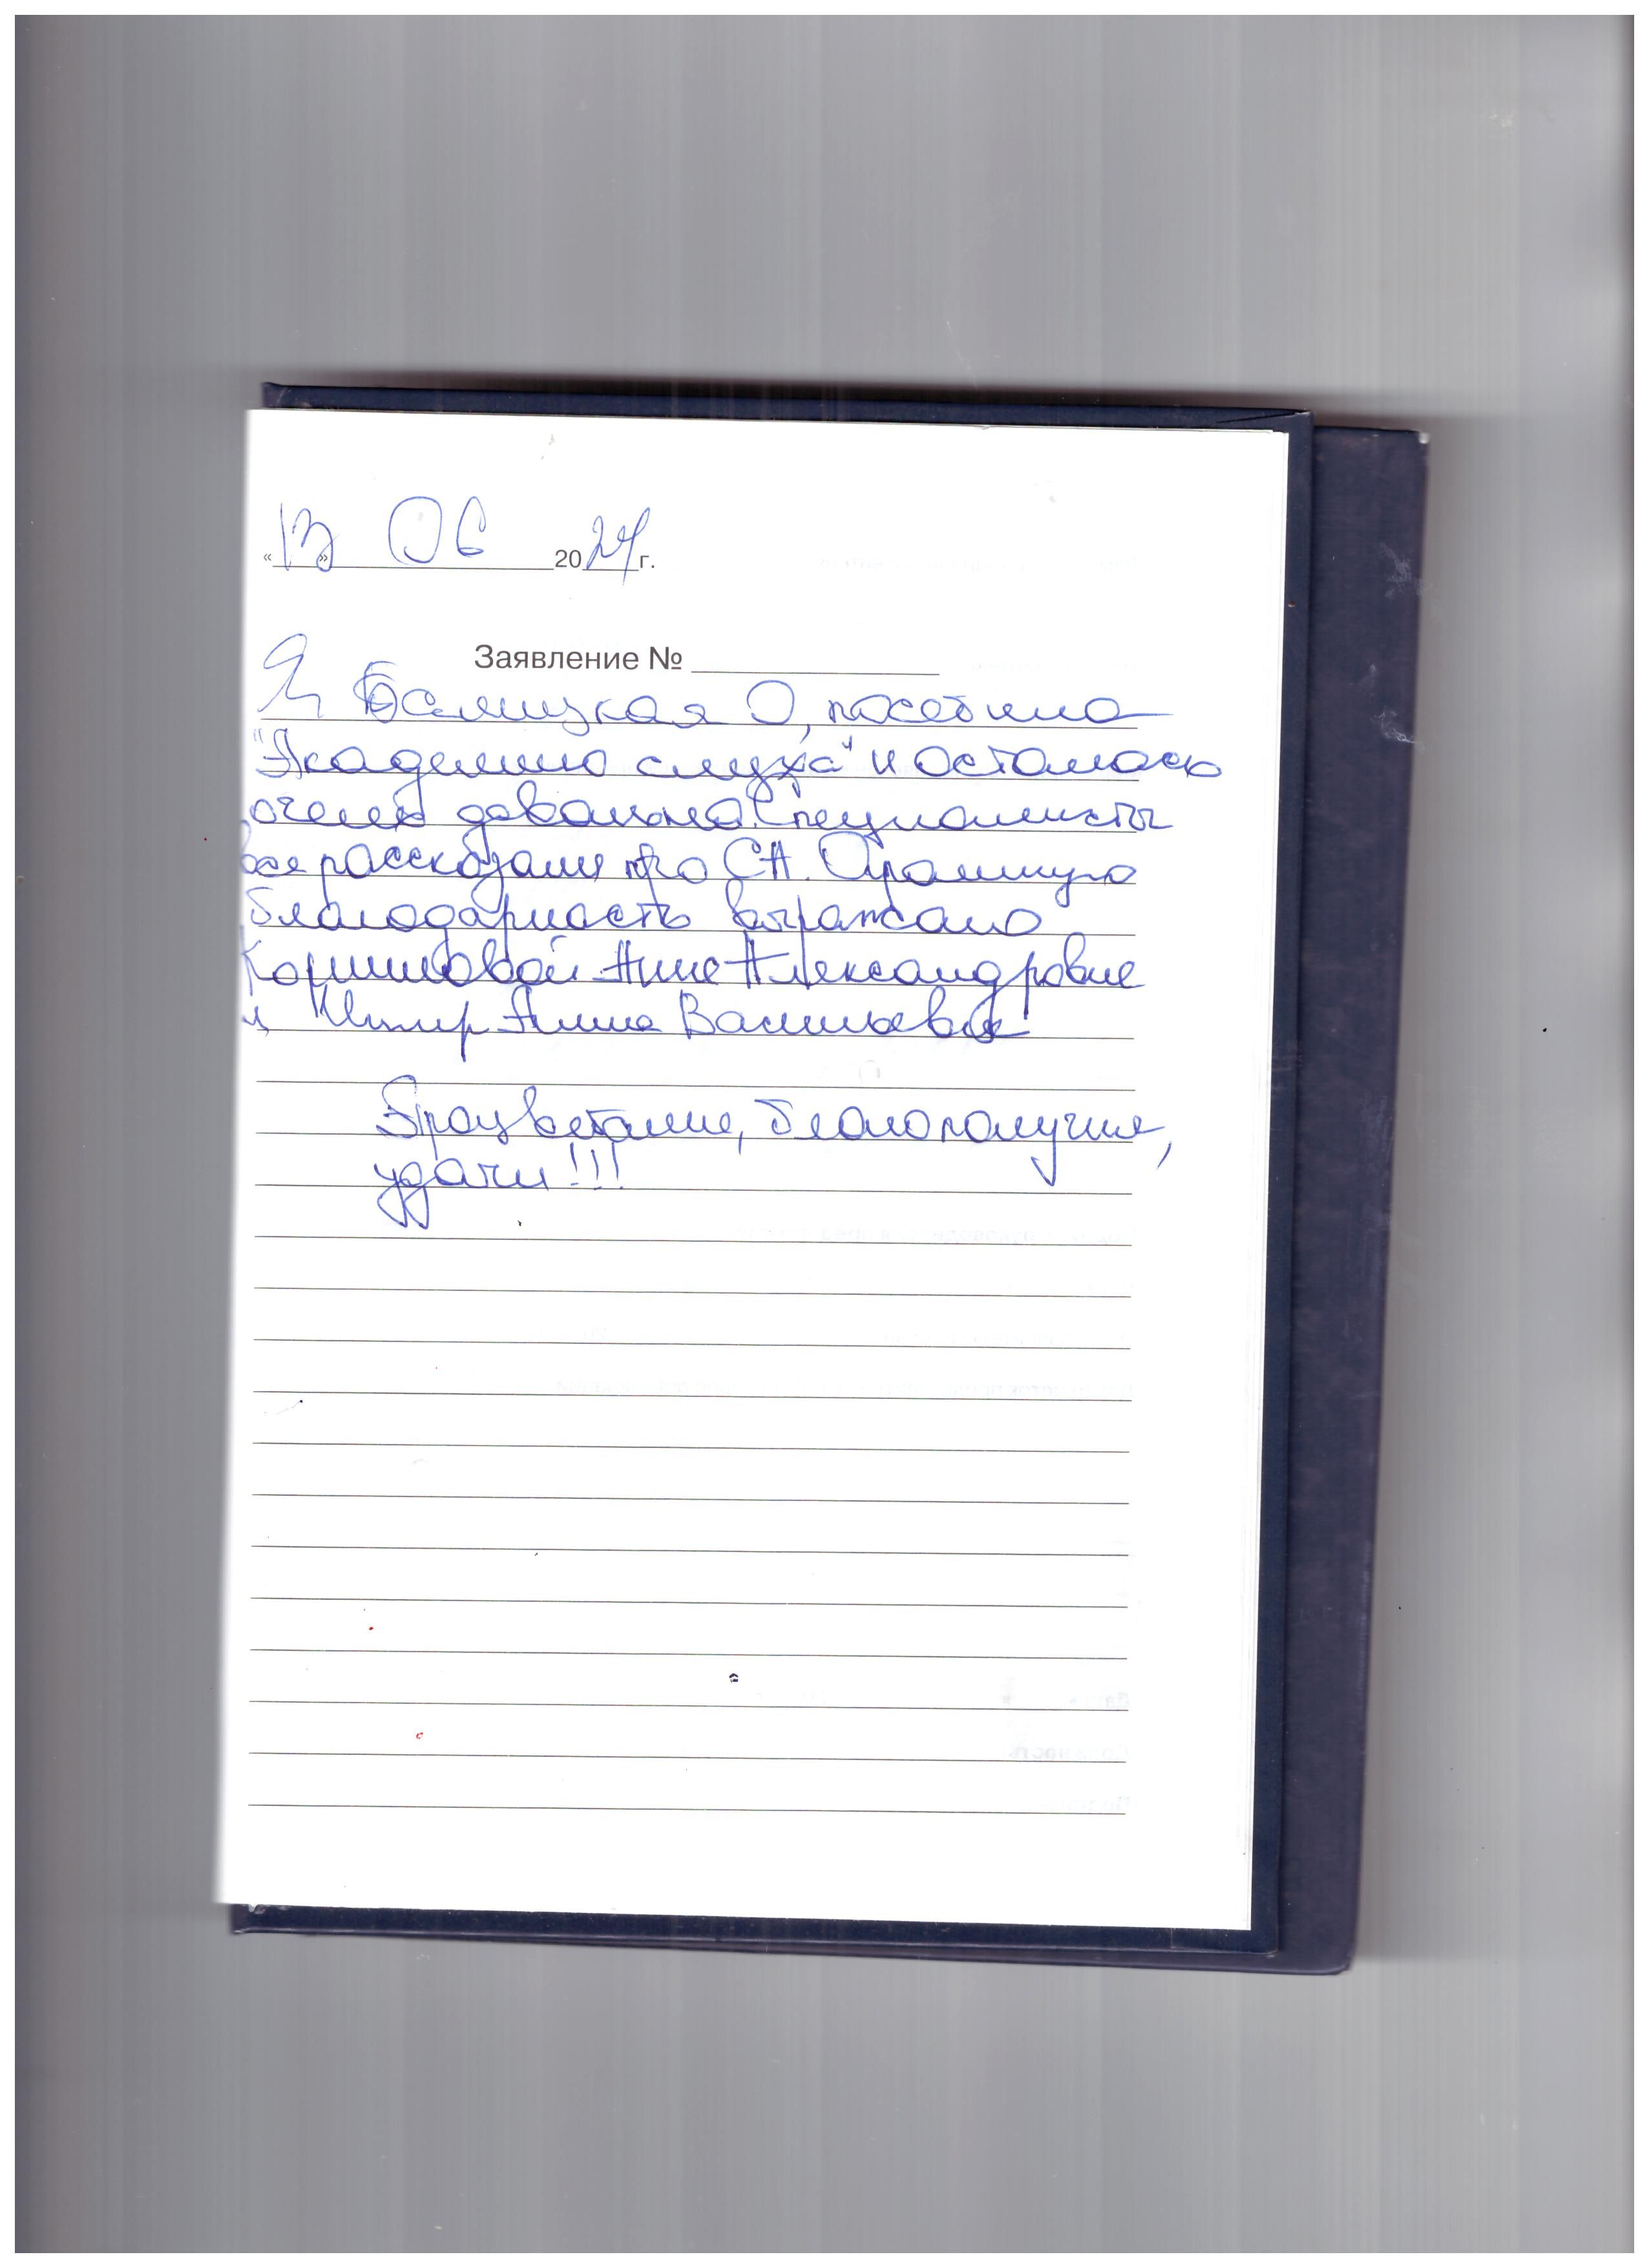 «13» 06 2024 г.
Заявление №
Я Балицкая О, посетила
"Академию слуха" и осталась
очень довольна. Специалисты
все рассказали про СА. Огромную
благодарность выражаю
Коршиковой Анне Александровне
и Анне Васильевне
Процветание, благополучия,
удачи!!!